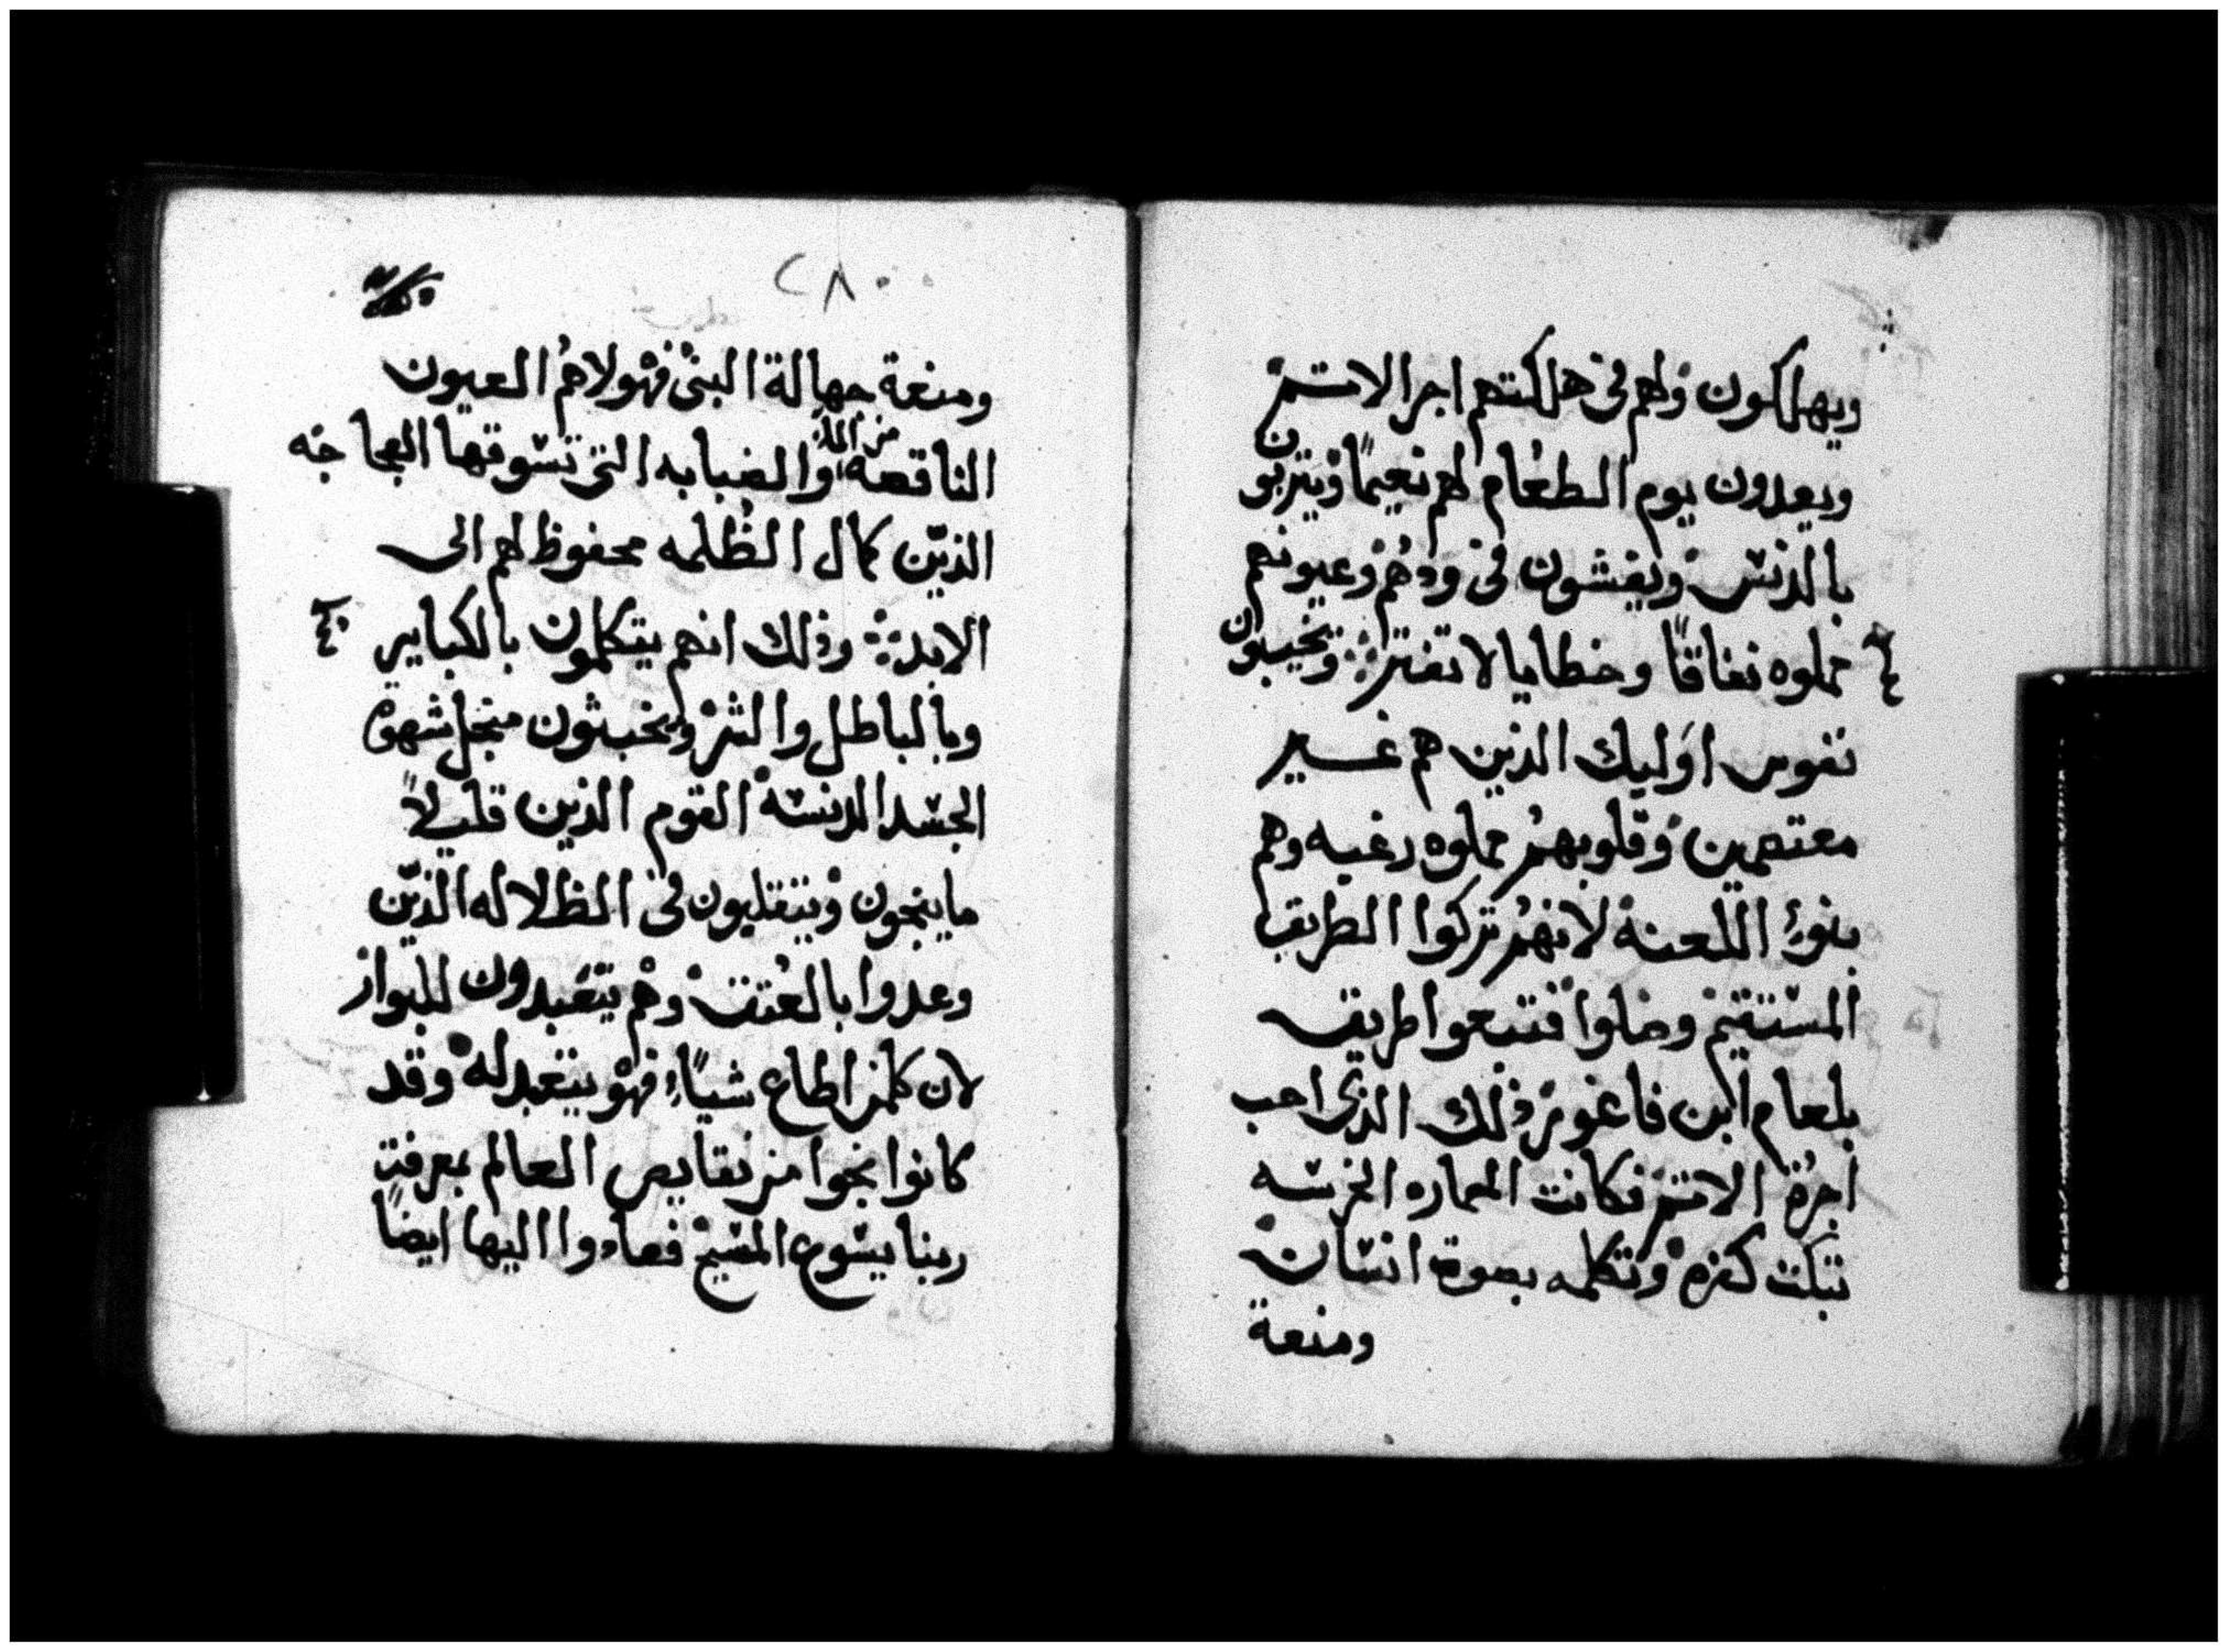 ويهلكون ولهم في هلكتهم اجر الاثم
ويعدون يوم الطعام لهم نعيمًا ويتربون
بالدنس ويغشون في ودهم وعيونهم
مملوه نفاقًا وخطايا لا تفتر ويخيبون
نفوس اوليك الذين هم غير
معتصمين وقلوبهم مملوه رغبه وهم
بنوا اللعنة لانهم تركوا الطريق
المستقيم وضلوا فتبعوا طريق
بلعام ابن فاغور ذلك الذي احب
اجرة الاثم فكانت الحماره الخرسه
تبكت كفره وتكلمه بصوت انسان
ومنعة
٢٨٠
ومنعة جهالة النبي فهولاهم العيون
الناقصه من الما والضبابه التي تسوقها العجاجه
الذين كمال الظلمه محفوظ لهم الى
الابد وذلك انهم يتكلمون بالكبابير
وبالباطل والشر ويخبثون منجل شهوة
الجسد الدنسه القوم الذين قليلاً
ما ينجون ويتقلبون في الظلاله الذين
وعدوا بالعتق وهم يتعبدون للبوار
لان كلمن اطاع شياء فهو يتعبد له وقد
كانوا نجوا من نقايص العالم بمعرفة
ربنا يسوع المسيح فعادوا اليها ايضًا